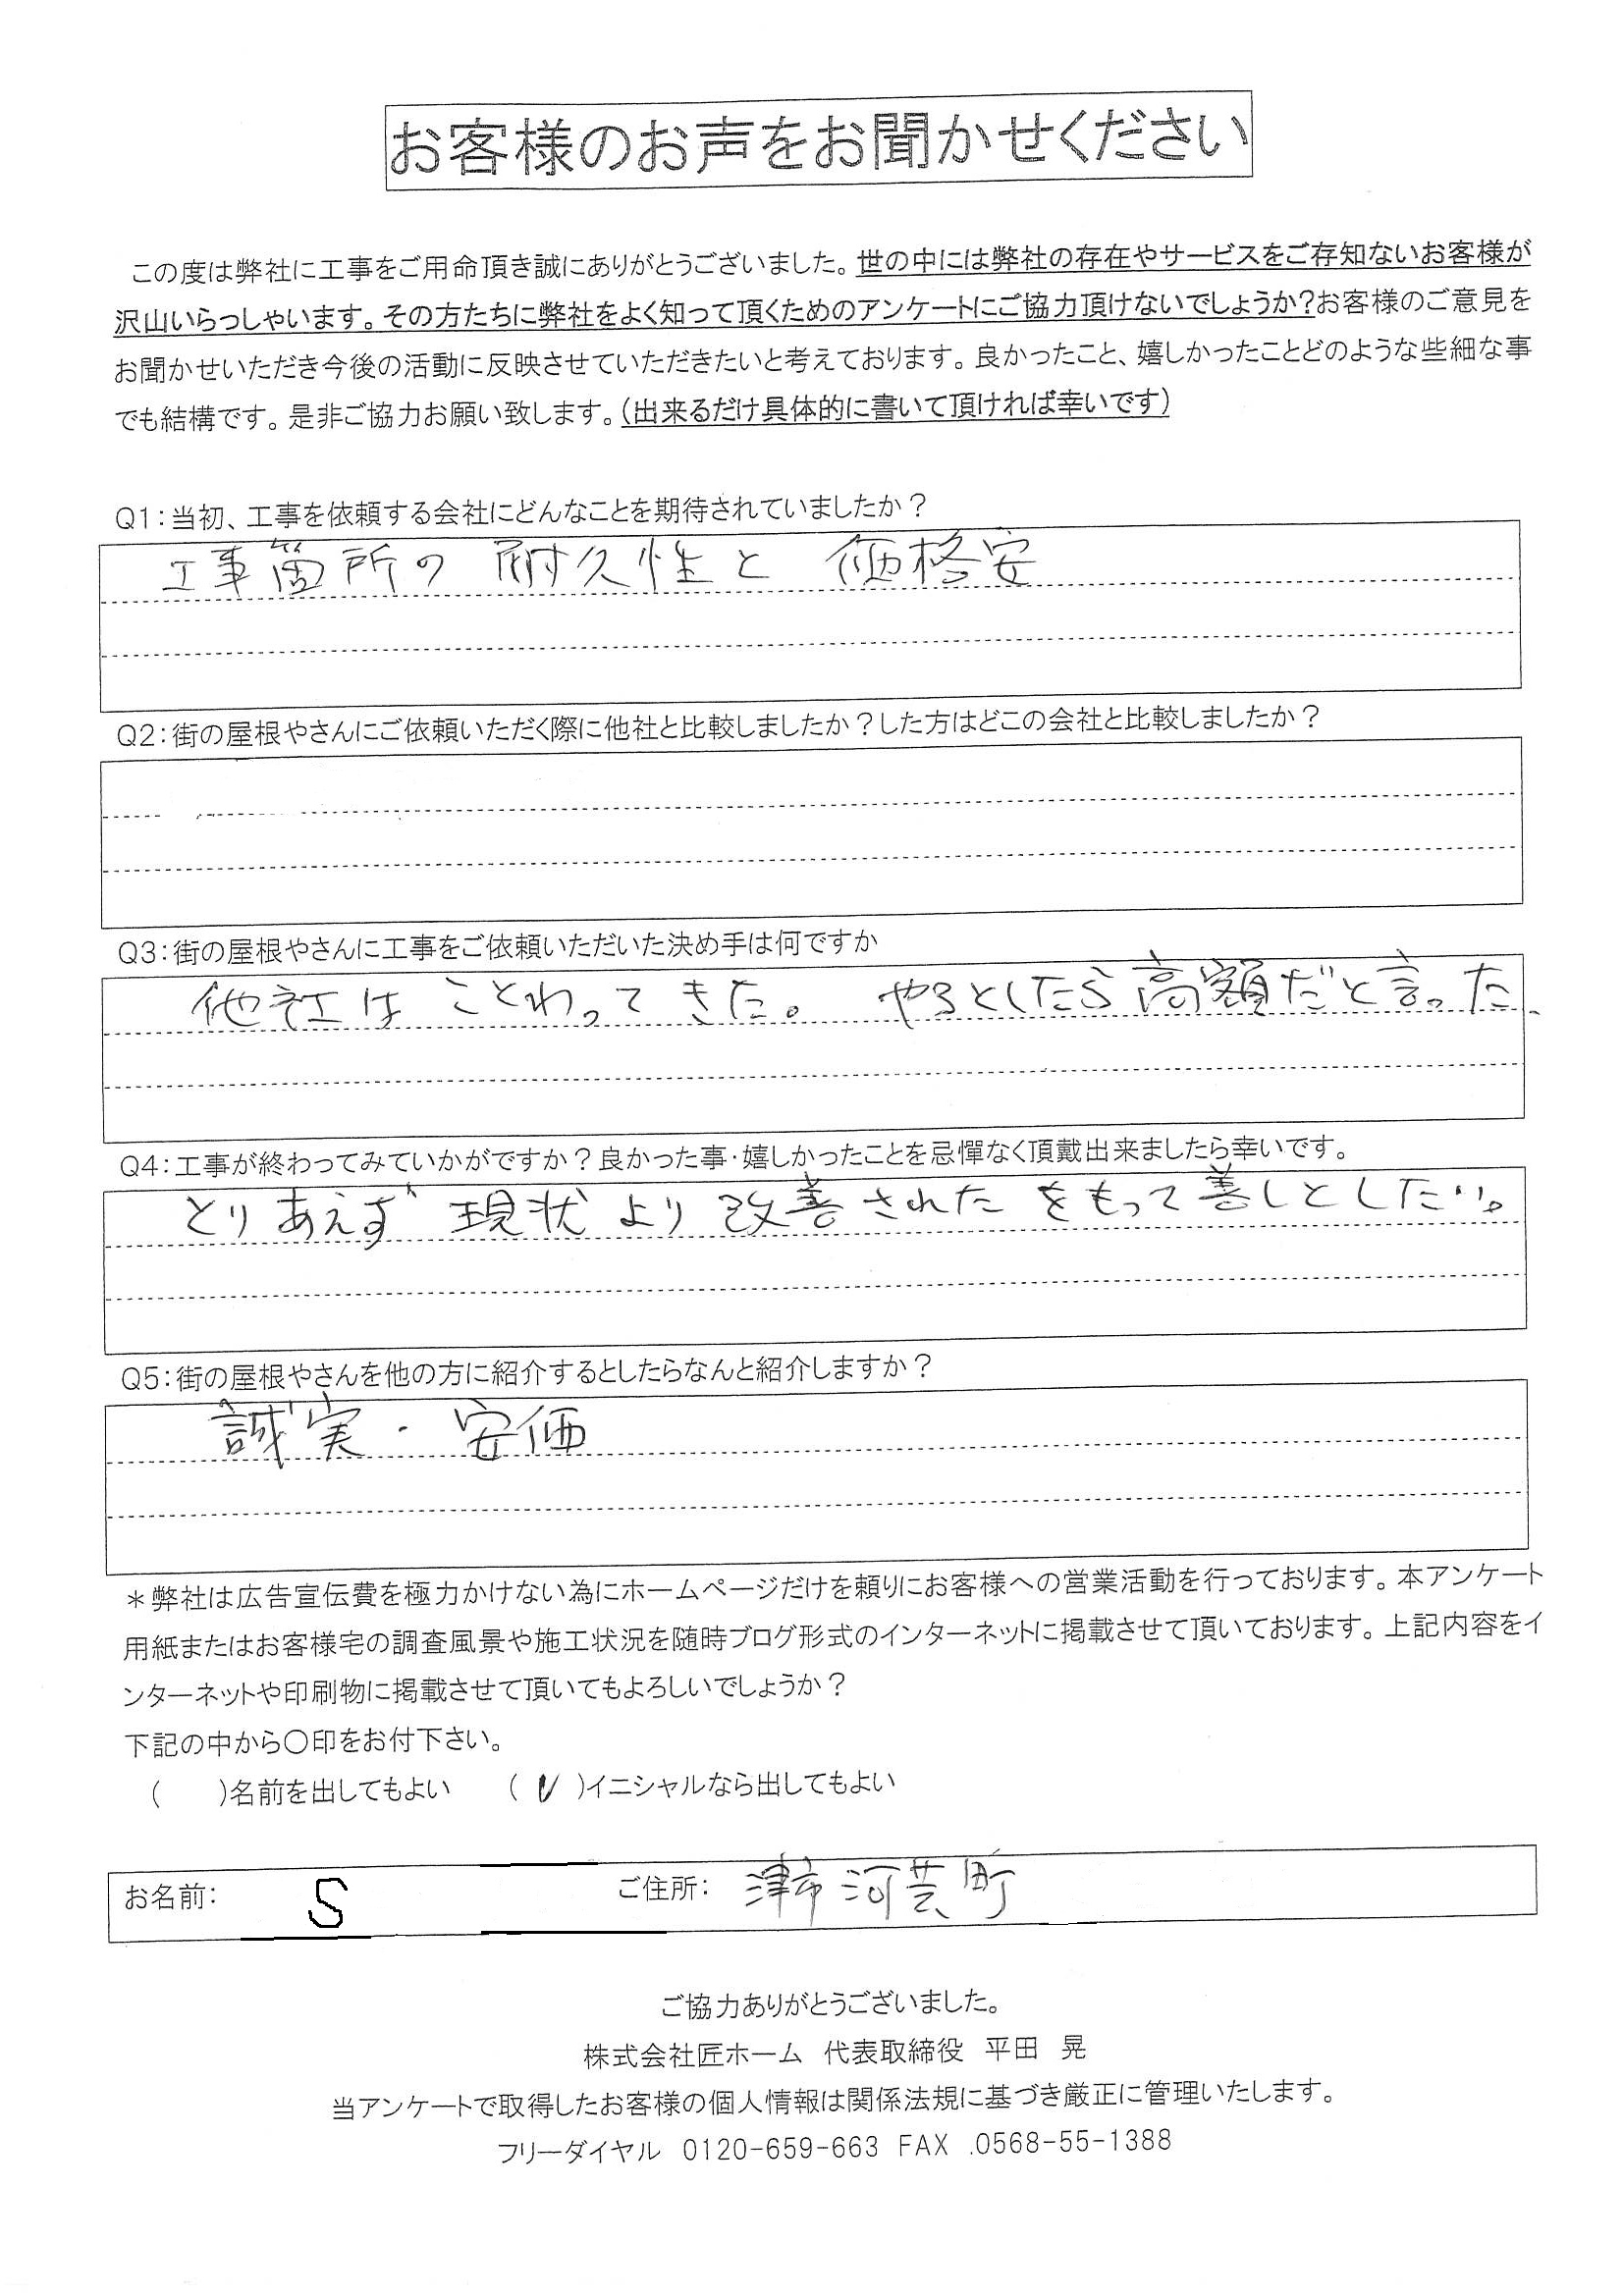 お客様のお声をお聞かせください
この度は弊社に工事をご用命頂き誠にありがとうございました。世の中には弊社の存在やサービスをご存知ないお客様が
沢山いらっしゃいます。その方たちに弊社をよく知って頂くためのアンケートにご協力頂けないでしょうか?お客様のご意見を
お聞かせいただき今後の活動に反映させていただきたいと考えております。良かったこと、嬉しかったことどのような些細な事
でも結構です。是非ご協力お願い致します。(出来るだけ具体的に書いて頂ければ幸いです)
Q1:当初、工事を依頼する会社にどんなことを期待されていましたか?
工事箇所の耐久性と 価格安
Q2:街の屋根やさんにご依頼いただく際に他社と比較しましたか?した方はどこの会社と比較しましたか?
Q3:街の屋根やさんに工事をご依頼いただいた決め手は何ですか
他社は ことわってきた。 やるとしたら高額だと言った、
Q4:工事が終わってみていかがですか?良かった事・嬉しかったことを忌憚なく頂戴出来ましたら幸いです。
とりあえず 現状より 改善された をもって善しとしたい。
Q5:街の屋根やさんを他の方に紹介するとしたらなんと紹介しますか?
誠実・安価
*弊社は広告宣伝費を極力かけない為にホームページだけを頼りにお客様への営業活動を行っております。本アンケート
用紙またはお客様宅の調査風景や施工状況を随時ブログ形式のインターネットに掲載させて頂いております。上記内容をイ
ンターネットや印刷物に掲載させて頂いてもよろしいでしょうか?
下記の中から〇印をお付下さい。
( )名前を出してもよい (✓)イニシャルなら出してもよい
お名前: S ご住所: 津市河芸町
ご協力ありがとうございました。
株式会社匠ホーム 代表取締役 平田 晃
当アンケートで取得したお客様の個人情報は関係法規に基づき厳正に管理いたします。
フリーダイヤル 0120-659-663 FAX .0568-55-1388